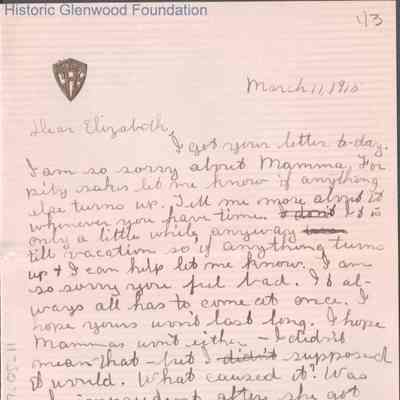 Historic Glenwood Foundation
1/3
March 11, 1910
Dear Elizabeth,
I got your letter to-day.
I am so sorry about Mamma, For
pity sakes let me know if anything
else turns up. Tell me more about it
whenever you have time. I don't It is
only a little while anyway
till vacation so if anything turns
up + I can help let me know. I am
so sorry you feel bad. It al-
ways all has to come at once. I
hope yours won't last long. I hope
Mammas won't either - I didn't
mean that - but I didn't supposed
it would. What caused it? Was
after she got